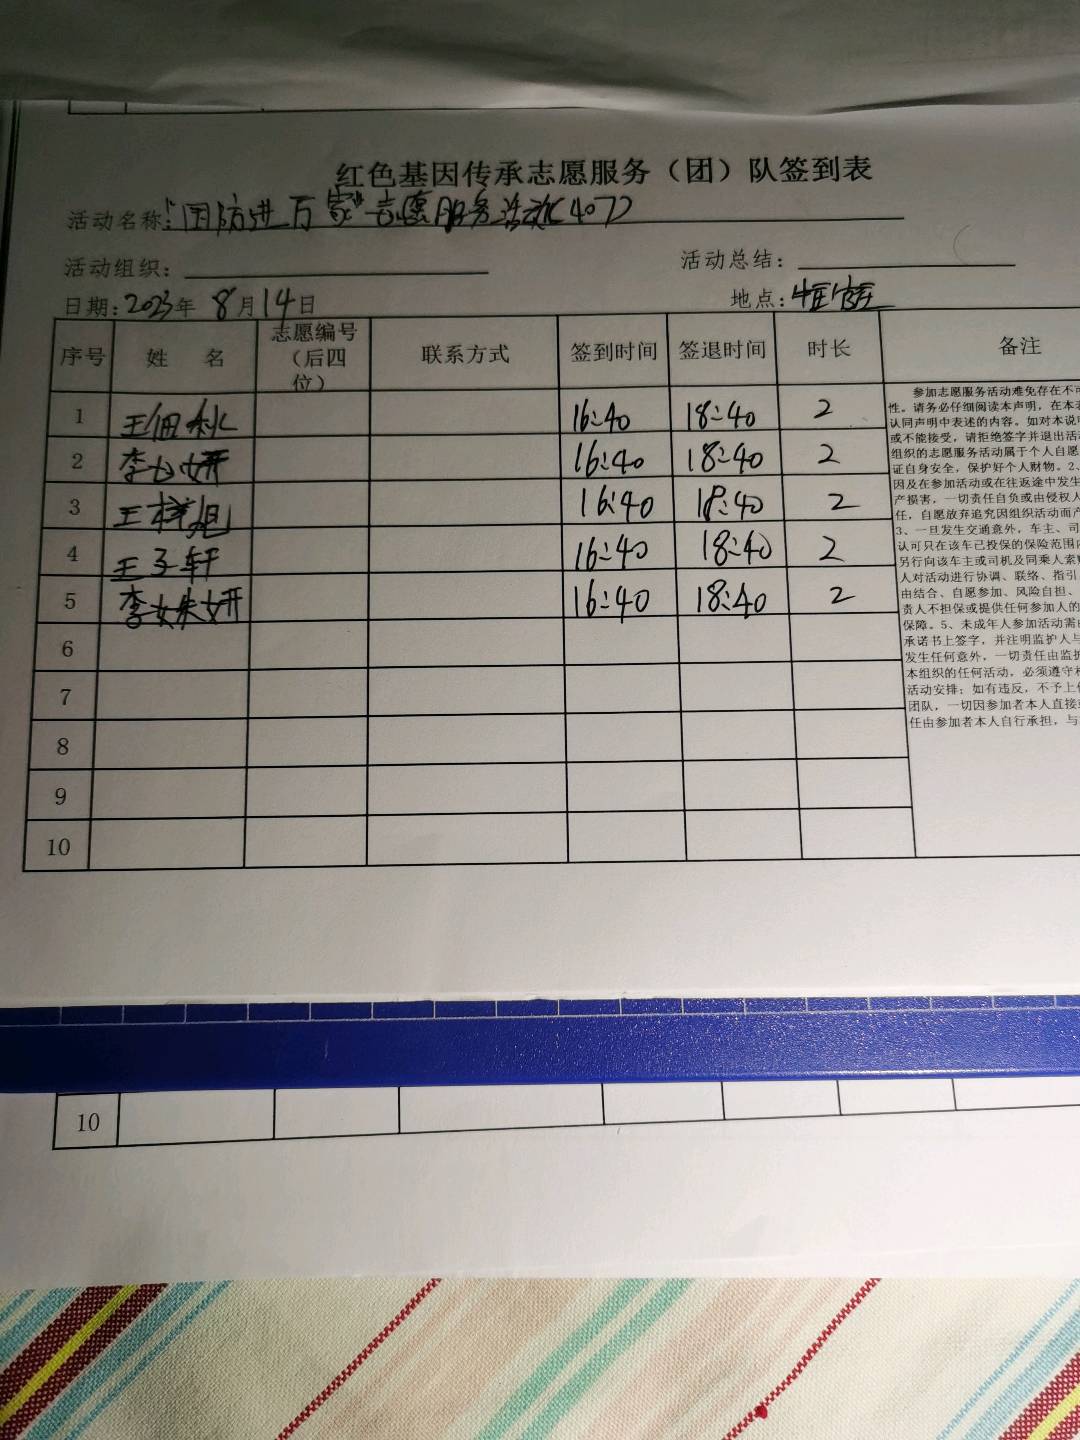 红色基因传承志愿服务（团）队签到表
活动名称:"国防进万家"志愿服务活动(407)
活动组织：
活动总结：
日期:2023年 8月14日
地点:
序号 姓 名 志愿编号（后四位） 联系方式 签到时间 签退时间 时长 备注
1 王佃 16:40 18:40 2
2 李 妍 16:40 18:40 2
3 王梓旭 16:40 18:40 2
4 王子轩 16:40 18:40 2
5 李姝妍 16:40 18:40 2
6
7
8
9
10
参加志愿服务活动难免存在不可
性。请务必仔细阅读本声明，在本表
认同声明中表述的内容。如对本说明
或不能接受，请拒绝签字并退出活动
组织的志愿服务活动属于个人自愿
证自身安全，保护好个人财物。2、
因及在参加活动或在往返途中发生
产损害，一切责任自负或由侵权人
任，自愿放弃追究因组织活动而产
3、一旦发生交通意外，车主、司
认可只在该车已投保的保险范围内
另行向该车主或司机及同乘人索赔
人对活动进行协调、联络、指引
由结合、自愿参加、风险自担、
责人不担保或提供任何参加人的
保障。5、未成年人参加活动需由
承诺书上签字，并注明监护人与
发生任何意外，一切责任由监护
本组织的任何活动，必须遵守相
活动安排；如有违反，不予上传
团队，一切因参加者本人直接或
任由参加者本人自行承担，与
10